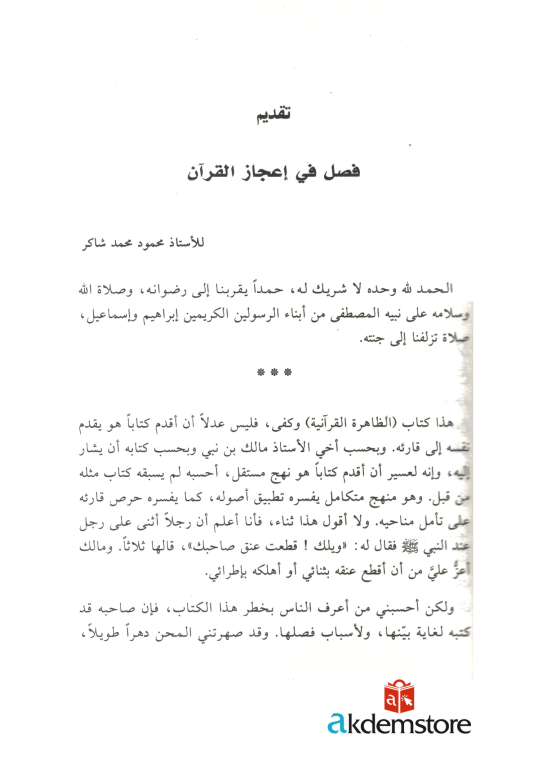 تقديم
فصل في إعجاز القرآن
للأستاذ محمود محمد شاكر
الحمد لله وحده لا شريك له، حمداً يقربنا إلى رضوانه، وصلاة الله
وسلامه على نبيه المصطفى من أبناء الرسولين الكريمين إبراهيم وإسماعيل،
صلاة تزلفنا إلى جنته.
***
هذا كتاب (الظاهرة القرآنية) وكفى، فليس عدلاً أن أقدم كتاباً هو يقدم
نفسه إلى قارئه. وبحسب أخي الأستاذ مالك بن نبي وبحسب كتابه أن يشار
إليه، وإنه لعسير أن أقدم كتاباً هو نهج مستقل، أحسبه لم يسبقه كتاب مثله
من قبل. وهو منهج متكامل يفسره تطبيق أصوله، كما يفسره حرص قارئه
على تأمل مناحيه. ولا أقول هذا ثناء، فأنا أعلم أن رجلاً أثنى على رجل
عند النبي ﷺ فقال له: «ويلك ! قطعت عنق صاحبك»، قالها ثلاثاً. ومالك
أعزُّ عليَّ من أن أقطع عنقه بثنائي أو أهلكه بإطرائي.
ولكن أحسبني من أعرف الناس بخطر هذا الكتاب، فإن صاحبه قد
كتبه لغاية بيّنها، ولأسباب فصلها. وقد صهرتني المحن دهراً طويلاً،
a
akdemstore